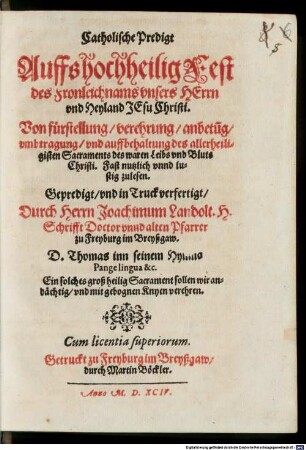 Catholische Predigt
Auffs hochheilig Fest
des Fronleichnams vnsers HErrn
vnd Heyland JEsu Christi.
Von fürstellung / verehrung / anbetüg /
vmbtragung / vnd auffbehaltung des allerheili-
gisten Sacraments des waren Leibs vnd Bluts
Christi. Fast nutzlich vnnd lu-
stig zulesen.
Gepredigt / vnd in Truck verfertigt /
Durch Herrn Joachimum Landolt. H.
Schrifft Doctor vnnd alten Pfarrer
zu Freyburg im Breyßgaw.
D. Thomas inn seinem
Pange lingua &c.
Ein solches groß heilig Sacrament sollen wir an-
dächtig / vnd mit gebognen Knyen verehren.
Cum licentia superiorum.
Getruckt zu Freyburg im Breyßgaw /
durch Martin Böckler.
Anno M. D. XCIV.